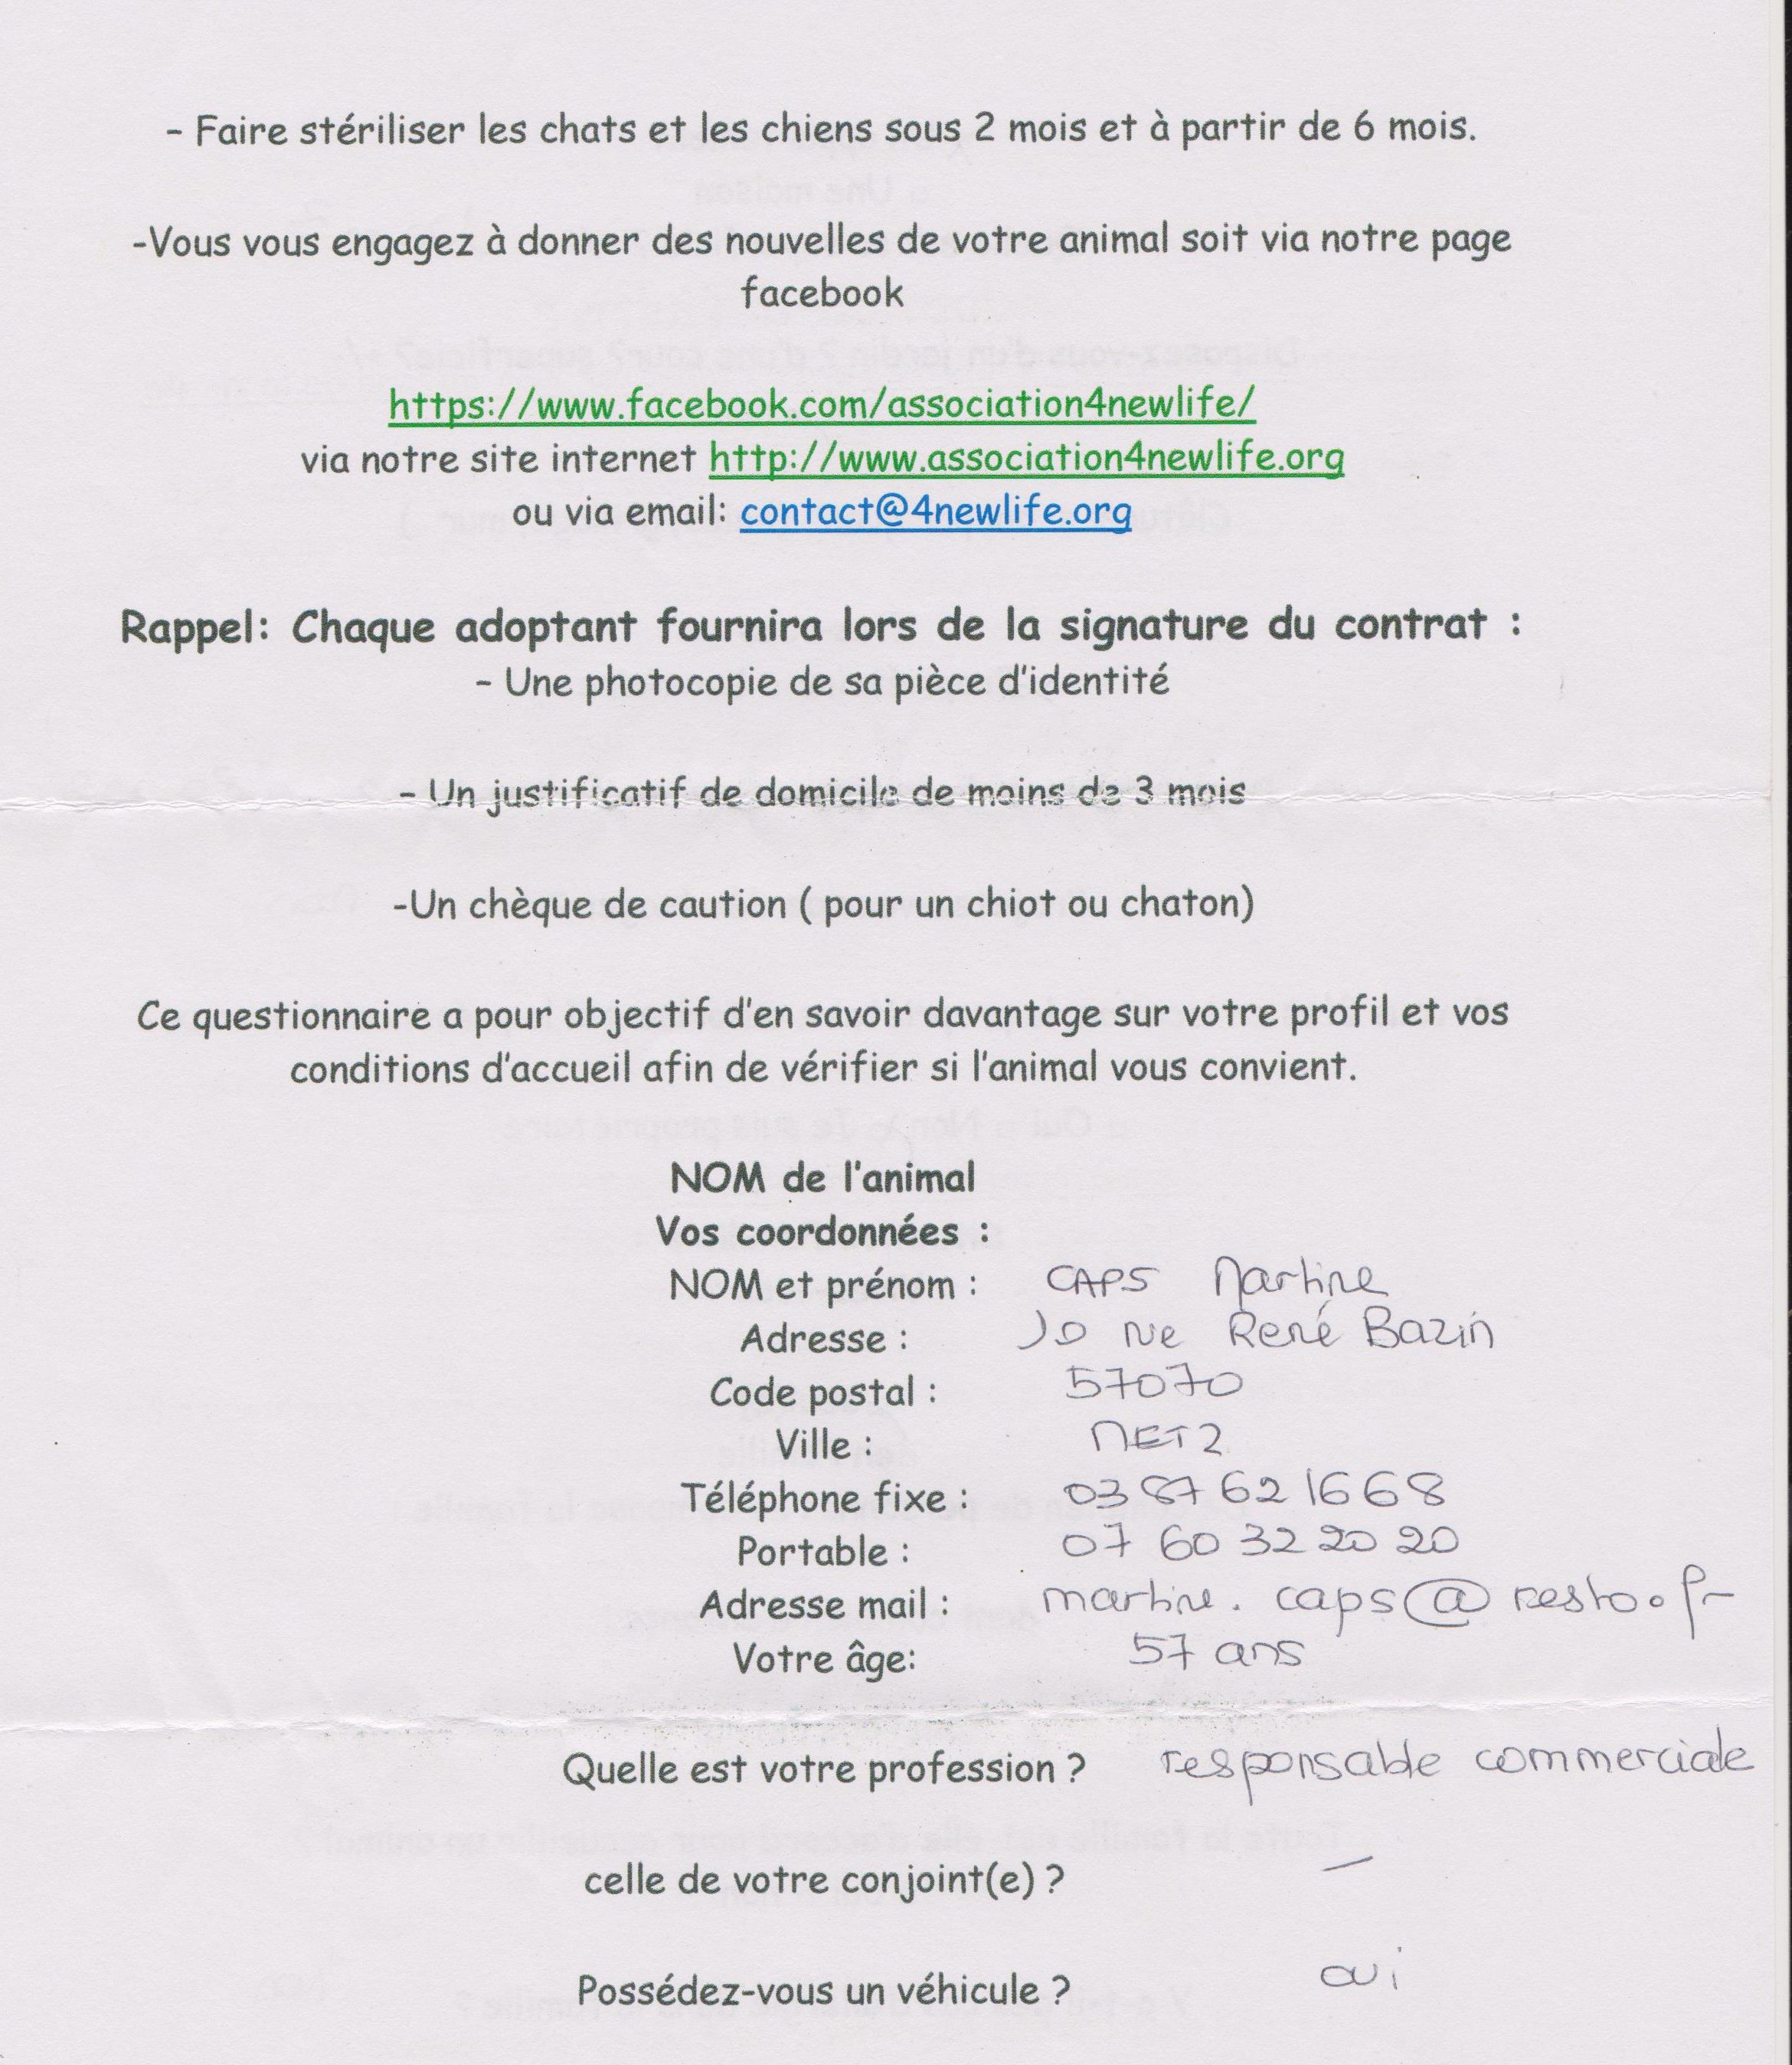 - Faire stériliser les chats et les chiens sous 2 mois et à partir de 6 mois.
-Vous vous engagez à donner des nouvelles de votre animal soit via notre page
facebook
https://www.facebook.com/association4newlife/
via notre site internet http://www.association4newlife.org
ou via email: contact@4newlife.org
Rappel: Chaque adoptant fournira lors de la signature du contrat :
- Une photocopie de sa pièce d'identité
- Un justificatif de domicile de moins de 3 mois
-Un chèque de caution ( pour un chiot ou chaton)
Ce questionnaire a pour objectif d'en savoir davantage sur votre profil et vos
conditions d'accueil afin de vérifier si l'animal vous convient.
NOM de l'animal
Vos coordonnées :
NOM et prénom : CAPS Martine
Adresse : 10 rue René Bazin
Code postal : 57070
Ville : METZ
Téléphone fixe : 03 87 62 16 68
Portable : 07 60 32 20 20
Adresse mail : martine.caps@resto.fr
Votre âge: 57 ans
Quelle est votre profession ? responsable commerciale
celle de votre conjoint(e) ? —
Possédez-vous un véhicule ? oui